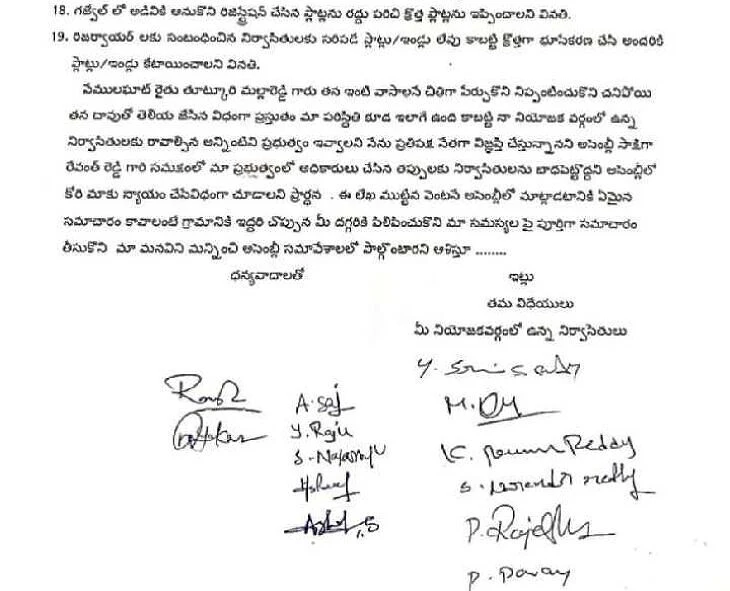 18. గజ్వేల్ లో అడవికి ఆనుకొని రిజిస్ట్రేషన్ చేసిన ప్లాట్లను రద్దు పరిచి క్రొత్త ప్లాట్లను ఇప్పించాలని వినతి.
19. రిజర్వాయర్ లకు సంబంధించిన నిర్వాసితులకు సరిపడే ప్లాట్లు/ఇండ్లు లేవు కాబట్టి క్రొత్తగా భూసేకరణ చేసి అందరికి
ప్లాట్లు/ఇండ్లు కేటాయించాలని వినతి.
వేములఘాట్ రైతు తూట్కూరి మల్లారెడ్డి గారు తన ఇంటి వాసాలనే చితిగా పేర్చుకొని నిప్పంటించుకొని చనిపోయి
తన చావుతో తెలియ జేసిన విధంగా ప్రస్తుతం మా పరిస్థితి కూడ ఇలాగే ఉంది కాబట్టి నా నియోజక వర్గంలో ఉన్న
నిర్వాసితులకు రావాల్సిన అన్నింటిని ప్రభుత్వం ఇవ్వాలని నేను ప్రతిపక్ష నేతగా విజ్ఞప్తి చేస్తున్నానని అసెంబ్లీ సాక్షిగా
రేవంత్ రెడ్డి గారి సమక్షంలో మా ప్రభుత్వంలో అధికారులు చేసిన తప్పులకు నిర్వాసితులను బాధపెట్టొద్దని అసెంబ్లీలో
కోరి మాకు న్యాయం చేసేవిధంగా చూడాలని ప్రార్థన . ఈ లేఖ ముట్టిన వెంటనే అసెంబ్లీలో మాట్లాడటానికి ఏమైన
సమాచారం కావాలంటే గ్రామానికి ఇద్దరి చొప్పున మీ దగ్గరికి పిలిపించుకొని మా సమస్యల పై పూర్తిగా సమాచారం
తీసుకొని మా మనవిని మన్నించి అసెంబ్లీ సమావేశాలలో పాల్గొంటారని ఆశిస్తూ ........
ధన్యవాదాలతో
ఇట్లు
తమ విధేయులు
మీ నియోజకవర్గంలో ఉన్న నిర్వాసితులు
Y.
A.
M.
Y. Raju
K. Reddy
S. Nagaraju
S. reddy
P.
P. Pavay